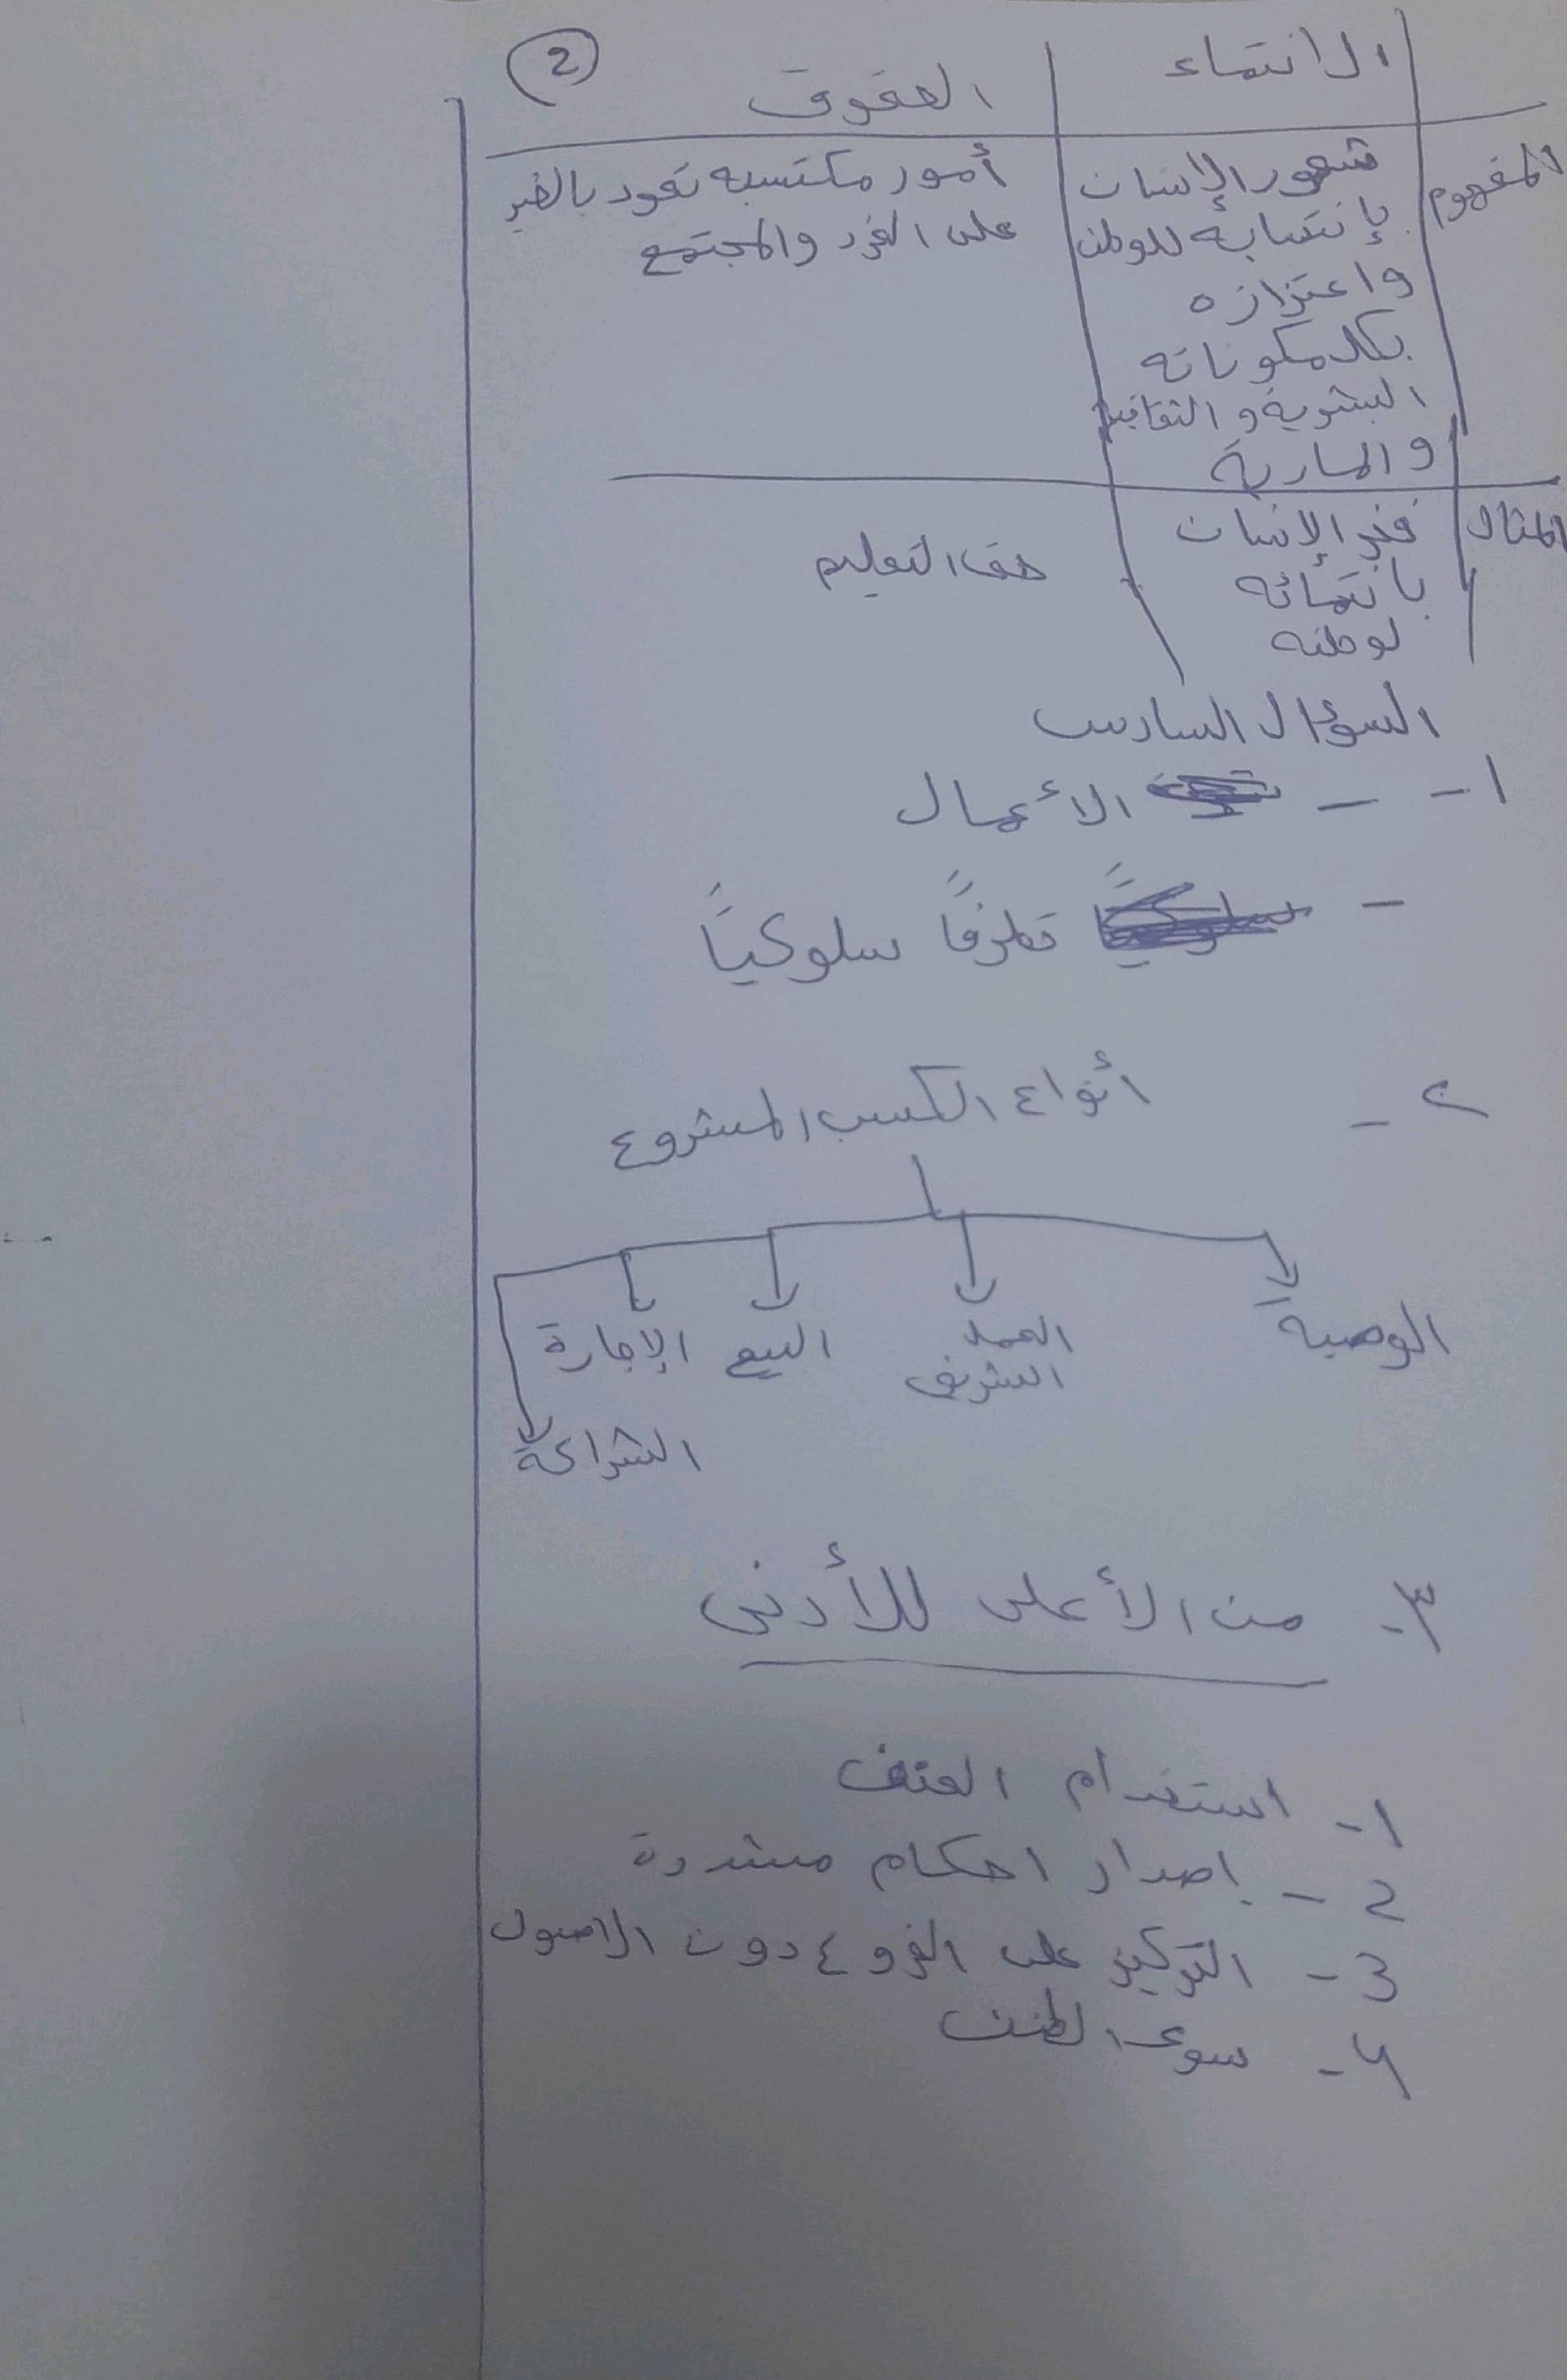 2
الانتماء الحقوق
المفهوم شعور الإنسان أمور مكتسبه تعود بالخير
بإنتسابه للوطن على الفرد والمجتمع
واعتزازه
بكل مكوناته
البشرية و الثقافية
والمادية
المثال فخر الإنسان حق التعليم
بانتمائه
لوطنه
السؤال السادس
١- - الأعمال
- تطرفًا سلوكيًا
٢- أنواع الكسب المشروع
الوصية العمل البيع الإجارة
الشريف
الشراكة
٣- من الأعلى للأدنى
١- استخدام العنف
2- إصدار احكام مشددة
3- التركيز على الفروع دون الاصول
4- سوء الظن